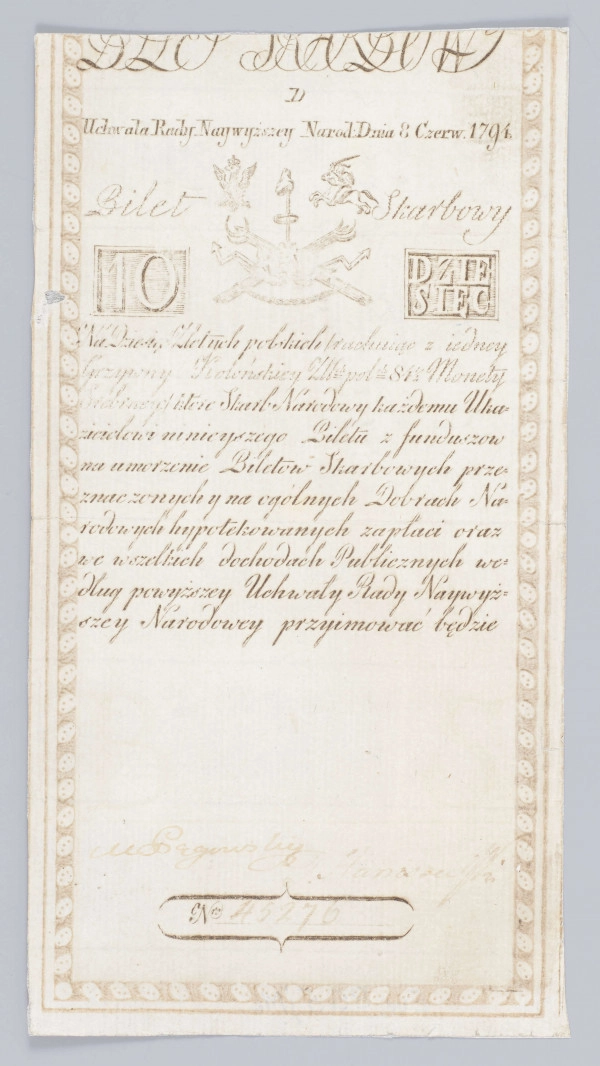 D
Uchwała Rady Naywyższey Narod: Dnia 8 Czerw. 1794.
Bilet Skarbowy
10 DZIE SIĘC
Na Dziesięć Złotych polskich rachuiąc z iédney
Grzywny Kolońskiey Złł: pol: 84½ Monety
Srebrney które Skarb Narodowy każdemu Uka=
zicielowi ninieyszego Biletu z funduszow
na umorzenie Biletów Skarbowych prze=
znaczonych y na ogólnych Dobrach Na=
rodowych hypotekowanych zapłaci oraz
we wszelkich dochodach Publicznych we=
dług powyższey Uchwały Rady Naywyż=
szey Narodowey przyimować będzie
No 45276